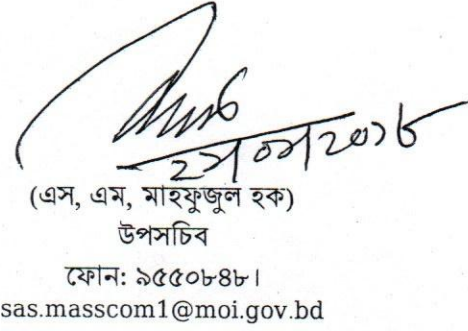 (এস, এম, মাহফুজুল হক)
উপসচিব
ফোন: ৯৫৫০৮৪৮।
sas.masscom1@moi.gov.bd